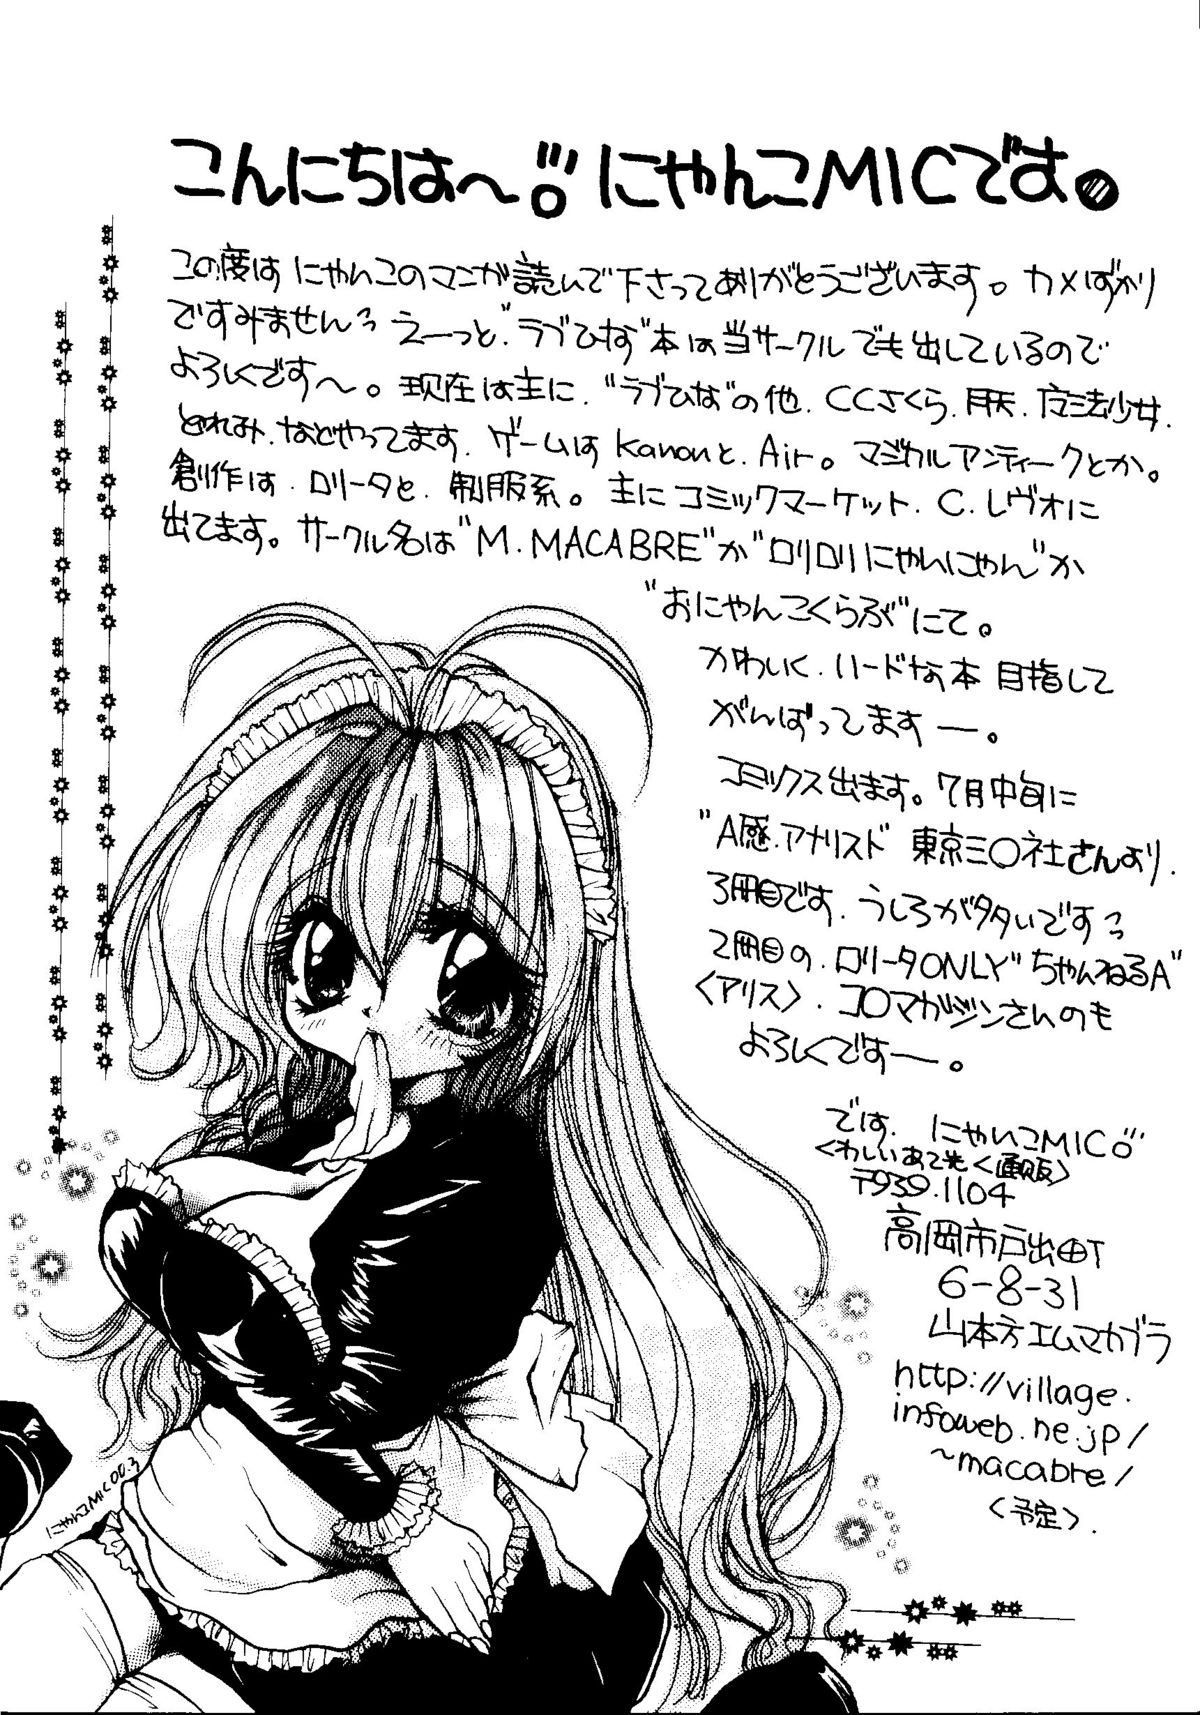 こんにちは～!! にゃんこMICです。
この度は にゃんこのマンガ読んで下さってありがとうございます。カメばかり
ですみませんっ えーっと、"ラブひな"本は当サークルでも出しているので
よろしくです～。現在は主に、"ラブひな"の他、CCさくら、月天、魔法少女、
どれみ、などやってます。ゲームは KanonとAir。マジカルアンティークとか。
創作は、ロリータと、制服系。主にコミックマーケット、C.レヴォに
出てます。サークル名は"M.MACABRE"か"ロリロリにゃんにゃん"か
"おにゃんこくらぶ"にて。
かわいく、ハードな本 目指して
がんばってますー。
コミックス出ます。7月中旬に
"A感.アナリスト" 東京三〇社さんより。
3冊目です。うしろが多いですっ
2冊目の、ロリータONLY"ちゃんねるA"
〈アリス〉、コ〇マガジンさんのも
よろしくですー。
です。にゃんこMIC
〈わしいあて先〈通販〉
〒939.1104
高岡市戸出町
6-8-31
山本方エムマカブラ
http://village.
infoweb.ne.jp/
~macabre/
〈予定〉.
にゃんこMIC 00.3